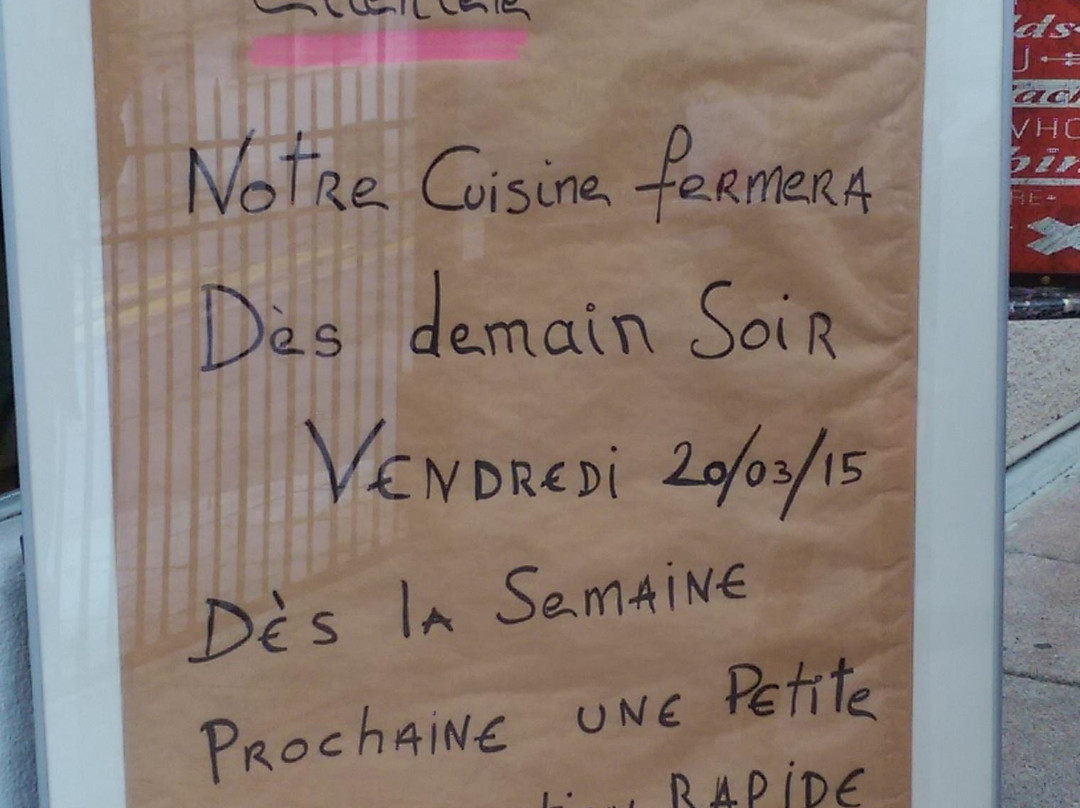 Notre Cuisine fermera
Dès demain Soir
Vendredi 20/03/15
Dès la Semaine
Prochaine une Petite
RAPiDE